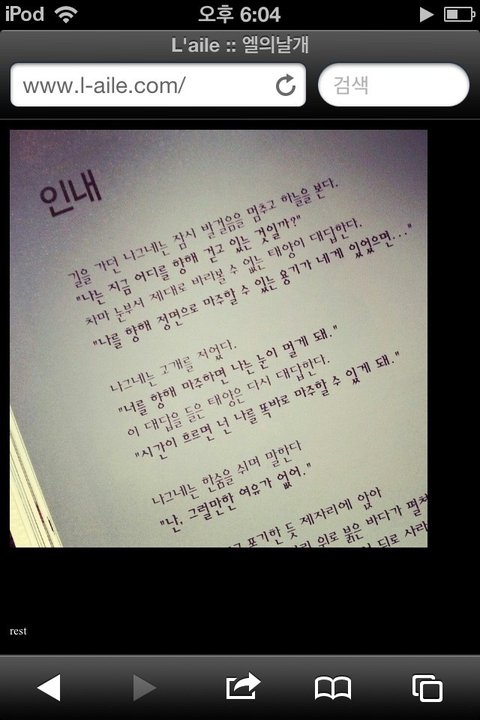 iPod 오후 6:04
L'aile :: 엘의날개
www.l-aile.com/ 검색
인내
길을 가던 나그네는 잠시 발걸음을 멈추고 하늘을 본다.
"나는 지금 어디를 향해 걷고 있는 것일까?"
차마 눈부셔 제대로 바라볼 수 없는 태양이 대답한다.
"나를 향해 정면으로 마주할 수 있는 용기가 네게 있었으면..."
나그네는 고개를 저었다.
"너를 향해 마주하면 나는 눈이 멀게 돼."
이 대답을 들은 태양은 다시 대답한다.
"시간이 흐르면 넌 나를 똑바로 마주할 수 있게 돼."
나그네는 한숨을 쉬며 말한다
"난, 그럴만한 여유가 없어."
포기한 듯 제자리에 앉아
위로 붉은 바다가 펼쳐
뒤로 사라
rest